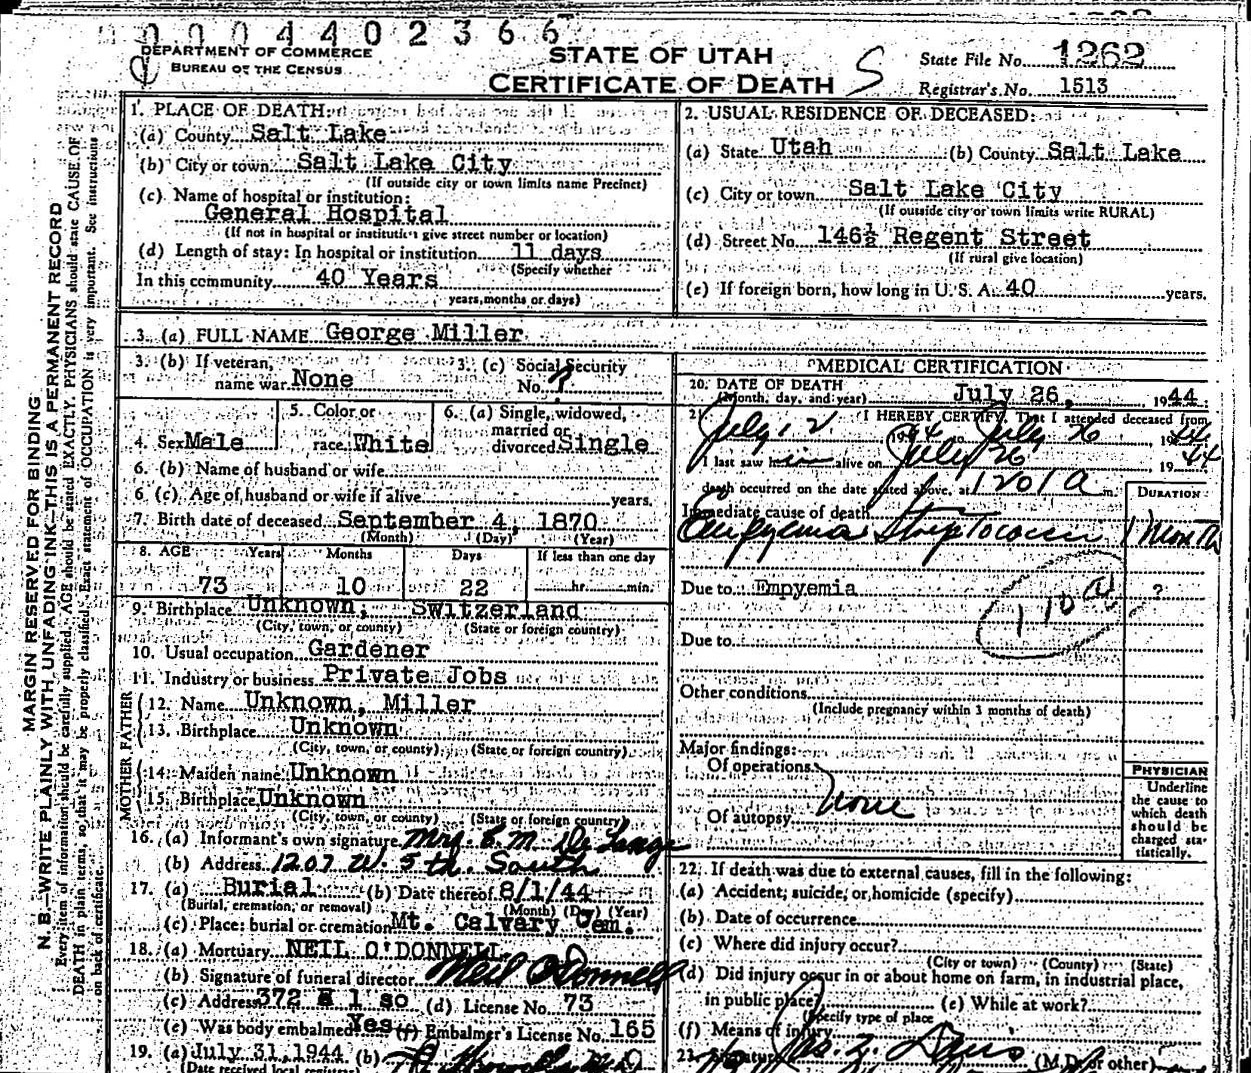 0 0 0 4 4 0 2 3 6 6
DEPARTMENT OF COMMERCE
BUREAU OF THE CENSUS
STATE OF UTAH
CERTIFICATE OF DEATH
S
State File No. 1262
Registrar's No. 1513
MARGIN RESERVED FOR BINDING
N. B.—WRITE PLAINLY WITH UNFADING INK—THIS IS A PERMANENT RECORD
Every item of information should be carefully supplied. AGE should be stated EXACTLY. PHYSICIANS should state CAUSE OF
DEATH in plain terms, so that it may be properly classified. Exact statement of OCCUPATION is very important. See instructions
on back of certificate.
1. PLACE OF DEATH:
(a) County Salt Lake
(b) City or town Salt Lake City
(If outside city or town limits name Precinct)
(c) Name of hospital or institution:
General Hospital
(If not in hospital or institution give street number or location)
(d) Length of stay: In hospital or institution 11 days
(Specify whether
In this community 40 Years
years, months or days)
2. USUAL RESIDENCE OF DECEASED:
(a) State Utah (b) County Salt Lake
(c) City or town Salt Lake City
(If outside city or town limits write RURAL)
(d) Street No. 146½ Regent Street
(If rural give location)
(e) If foreign born, how long in U. S. A. 40 years.
3. (a) FULL NAME George Miller
3. (b) If veteran, name war None
3. (c) Social Security No. ?
4. Sex Male
5. Color or race White
6. (a) Single, widowed, married or divorced Single
6. (b) Name of husband or wife
6 (c). Age of husband or wife if alive years.
7. Birth date of deceased September 4, 1870
(Month) (Day) (Year)
8. AGE Years Months Days If less than one day
73 10 22 hr. min.
9. Birthplace Unknown, Switzerland
(City, town, or county) (State or foreign country)
10. Usual occupation Gardener
11. Industry or business Private Jobs
FATHER
12. Name Unknown, Miller
13. Birthplace Unknown
(City, town, or county) (State or foreign country)
MOTHER
14. Maiden name Unknown
15. Birthplace Unknown
(City, town, or county) (State or foreign country)
16. (a) Informant's own signature Mrs. E. M. De Lange
(b) Address 1207 W. 5th. South
17. (a) Burial (b) Date thereof 8/1/44
(Burial, cremation, or removal) (Month) (Day) (Year)
(c) Place: burial or cremation Mt. Calvary Cem.
18. (a) Mortuary NEIL O'DONNELL
(b) Signature of funeral director Neil O'Donnell
(c) Address 372 E 1 SO (d) License No. 73
(e) Was body embalmed Yes (f) Embalmer's License No. 165
19. (a) July 31, 1944 (b)
(Date received local
MEDICAL CERTIFICATION
20. DATE OF DEATH
(Month, day, and year) July 26, 1944
I HEREBY CERTIFY, That I attended deceased from
July 12 1944 to July 26 1944
I last saw him alive on July 26 1944
death occurred on the date stated above, at 1201 A m.
Immediate cause of death DURATION
Empyema Streptococcic 1 Month
Due to Empyemia ?
110 a
Due to
Other conditions
(Include pregnancy within 3 months of death)
Major findings:
Of operations
Of autopsy None
PHYSICIAN
Underline
the cause to
which death
should be
charged sta-
tistically.
22. If death was due to external causes, fill in the following:
(a) Accident, suicide, or homicide (specify)
(b) Date of occurrence
(c) Where did injury occur?
(City or town) (County) (State)
(d) Did injury occur in or about home on farm, in industrial place,
in public place? (e) While at work?
(Specify type of place
(f) Means of injury
23. Signature (M.D. or other)